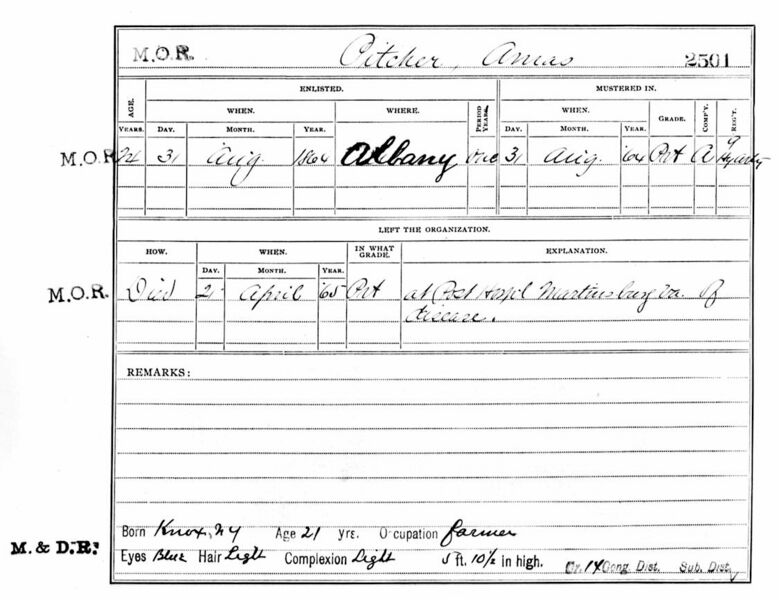 M.O.R. Pitcher, Amas 2501
ENLISTED. MUSTERED IN.
AGE. WHEN. WHERE. PERIOD YEARS. WHEN. GRADE. COMP'Y. REG'T.
YEARS. DAY. MONTH. YEAR. DAY. MONTH. YEAR.
M.O.R. 24 31 Aug. 1864 Albany One 31 Aug. '64 Pvt A 9 Hy Arty
LEFT THE ORGANIZATION.
HOW. WHEN. IN WHAT GRADE. EXPLANATION.
DAY. MONTH. YEAR.
M.O.R. Died April '65 Pvt at Post Hosp'l Martinsburg Va. of
disease.
REMARKS:
Born Knox, NY Age 21 yrs. Occupation farmer
M. & D. R.
Eyes Blue Hair Light Complexion Light 5 ft. 10½ in high. Cr. 14 Cong. Dist. Sub. Dist.